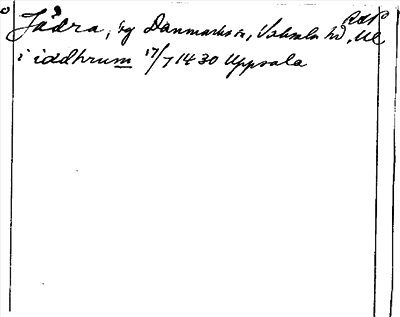 Jädra, by Danmarks sn, Vaksala hd, Ul RAP
i iddhrum 17/7 1430 Uppsala